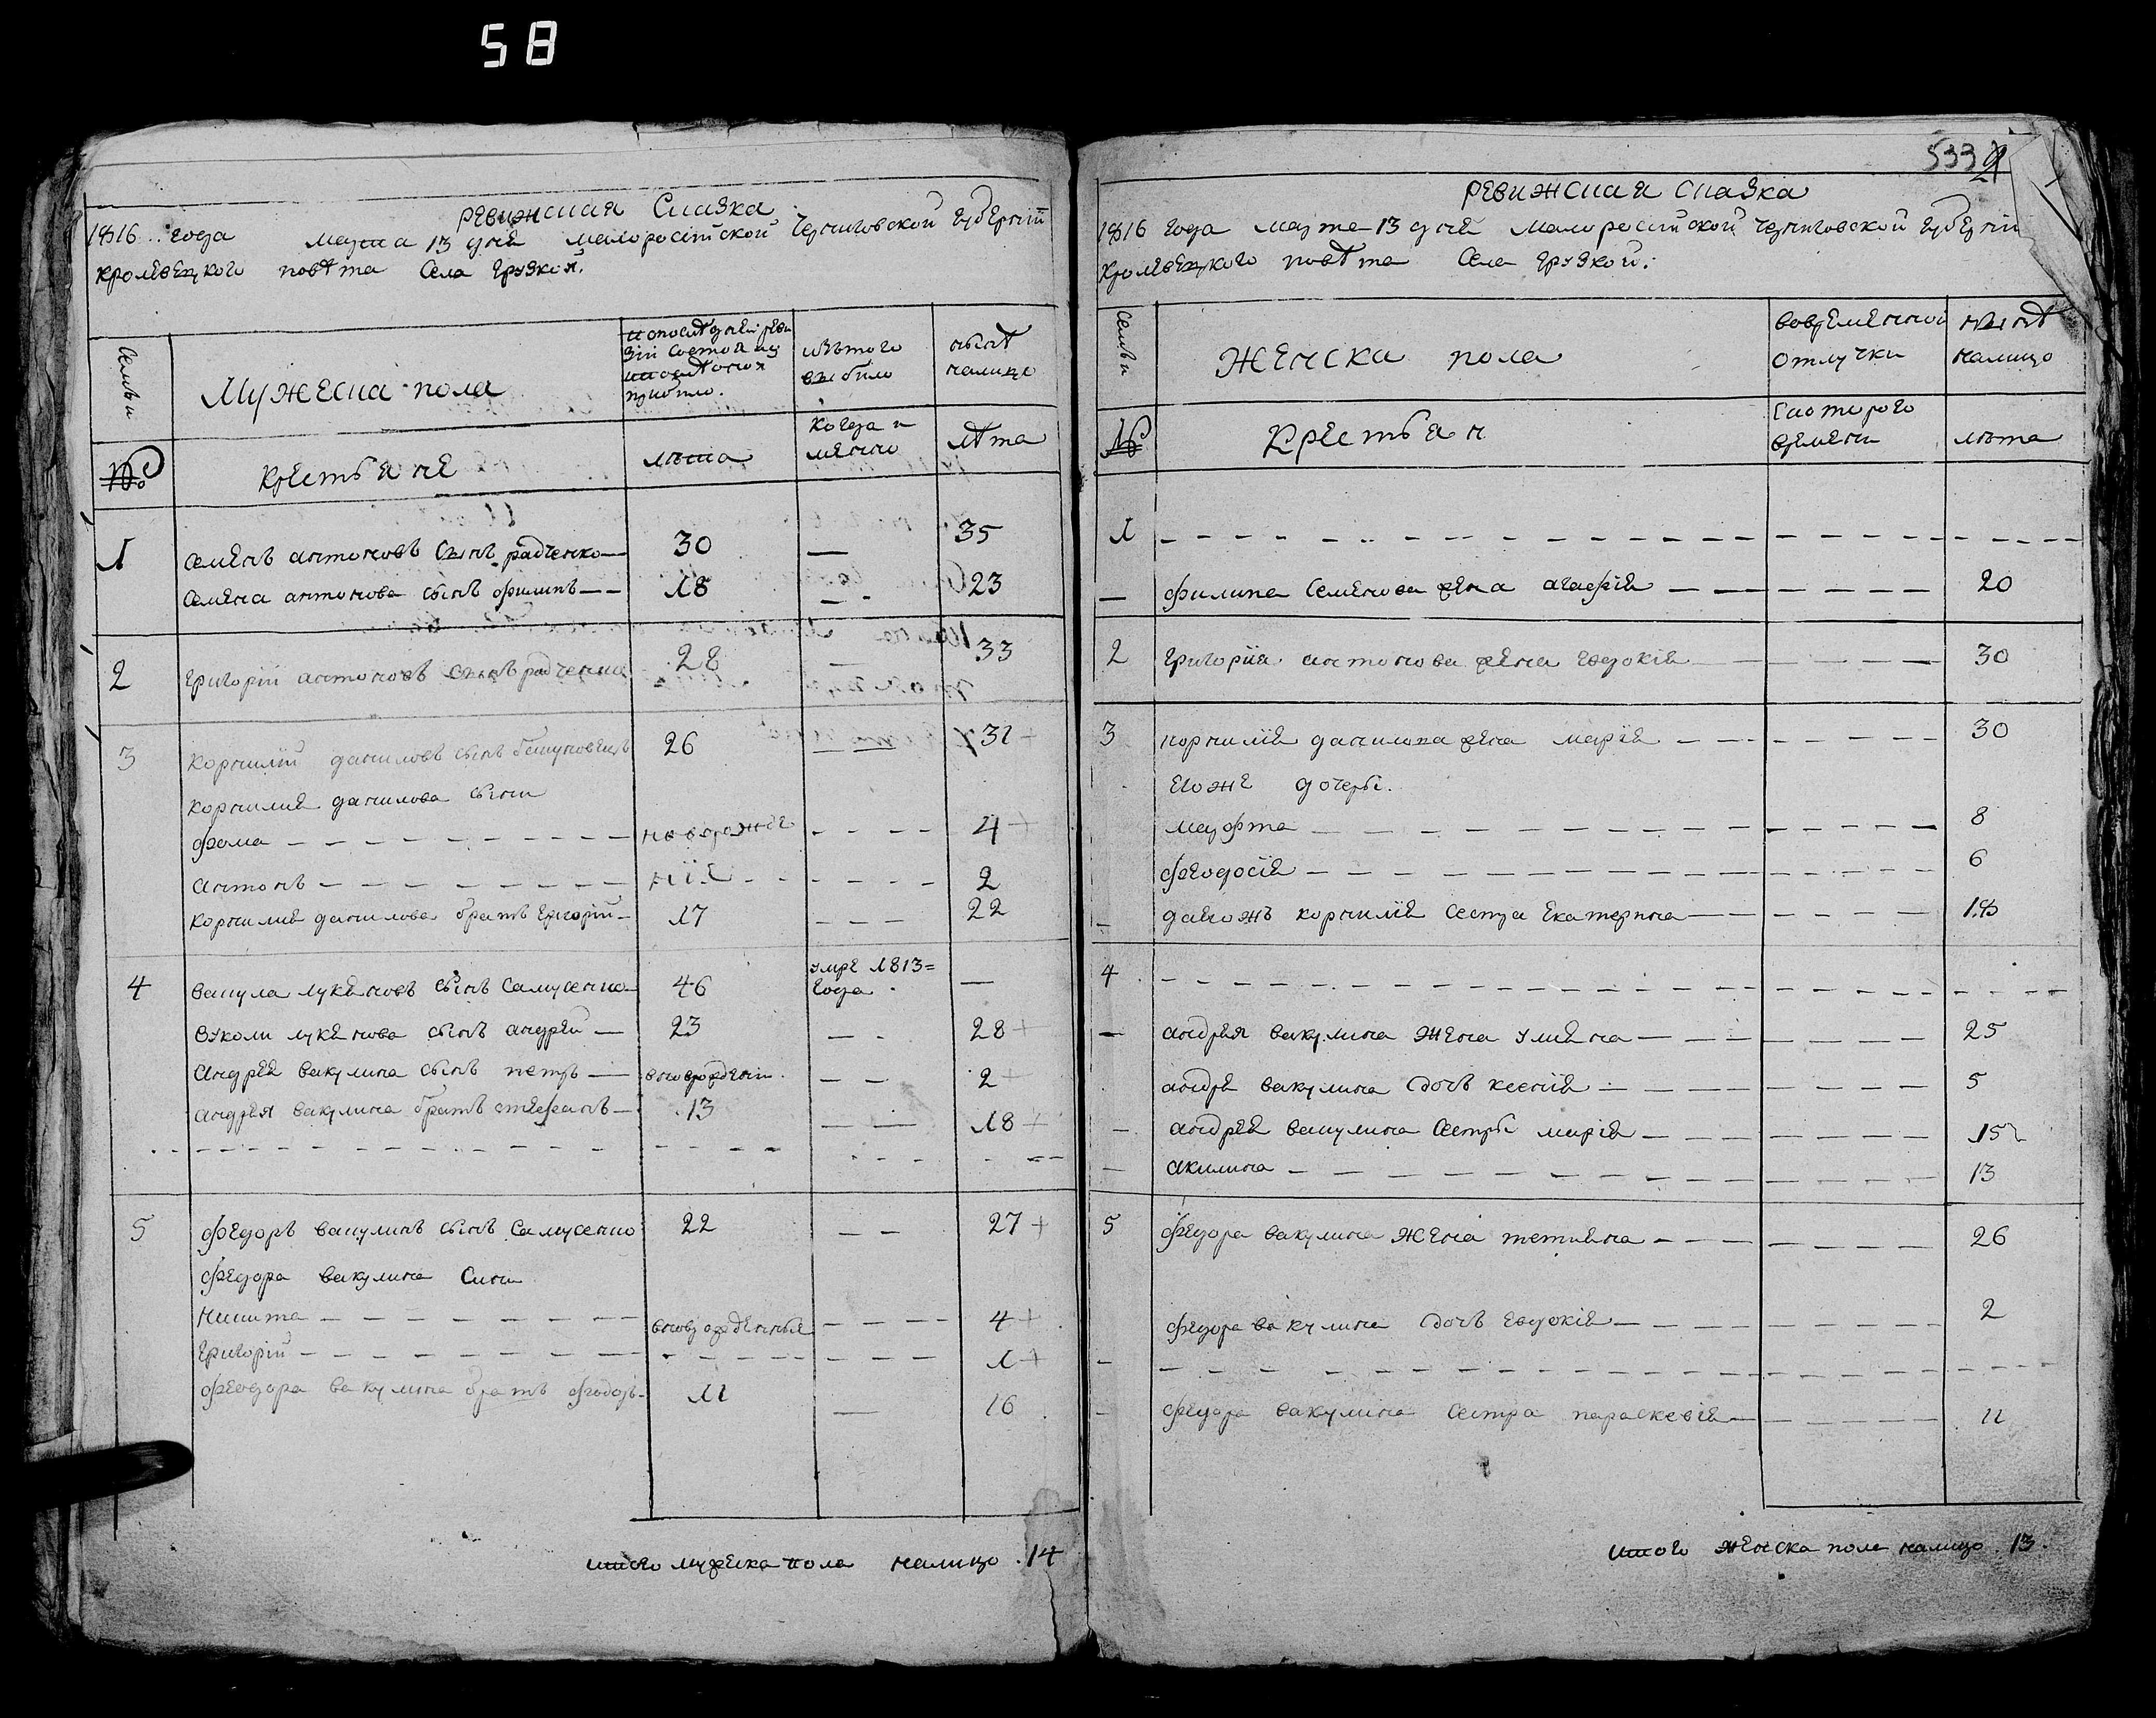 58
533
ревижская Сказка
1816 года марта 13 дня малоросійской Черниговской губерніи
кролѣвецкого повѣта Села грузкой.
Семьи
Мужеска пола
и с того
выбило
нынѣ
налицо
№
крестьяне
лѣта
когда и
менно
лѣта
1 Семенъ антоновъ сынъ радченко — 30 — 35
Семена антонова сынъ филипъ — 18 — 23
2 григорій антоновъ сынъ радченко 28 — 33
3 корнилій даниловъ сынъ 26 — 31
корнилия данилова сыни
фома — новорожде — 4
антонъ — ніе — 2
корнилия данилова братъ григорій — 17 — 22
4 вакула лукяновъ сынъ самусенко 46 умре 1813= —
года
вуколи лукянова сынъ андрей — 23 — 28
андрея вакулина сынъ петръ — вноворожденіи — 2
андрея вакулина братъ стефанъ — 13 — 18
5 федоръ вакулинъ сынъ самусенко 22 — 27
федора вакулина сини
никита — 4
григорій — 1
феодора вакулина братъ феодоръ — 11 — 16
итого мужеска пола налицо 14
ревижская сказка
1816 года марта 13 дня малоросійской черниговской губерніи
кролѣвецкого повѣта Села грузкой:
Семьи
Женска пола
вовременной
отлучки
нынѣ
налицо
№
Крестьян
Скоторого
времени
лѣта
1
филипа Семенова жена агафія — 20
2 григорія антонова жена евдокія — 30
3 корнилія данилова жена марія — 30
егоже дочери.
марфта — 8
феодосія — 6
даегожъ корнилія сестра екатерина — 18
4
андрея вакулина жена улияна — 25
андре вакулина дочъ ксенія — 5
андрея вакулина сестри марія — 15
акилина — 13
5 федора вакулина жена тетияна — 26
федора вакулина дочъ евдокія — 2
федора вакулина сестра параскевія — 11
итого женска пола налицо 13.